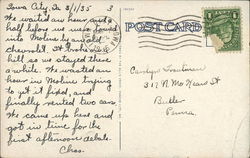 Iowa City, Ia 3/1/35 3
We waited an hour and a
half before we were towed
into Moline by an old
chevrolet. It broke on a
hill so we stayed there
awhile. We waited an
hour in Moline trying
to get it fixed, and
finally rented two cars.
We came up here and
got in time for the
first afternoon debate.
Chas.
POST CARD
Carolyn Troutman
317 N. McKean St
Butler
Penna.